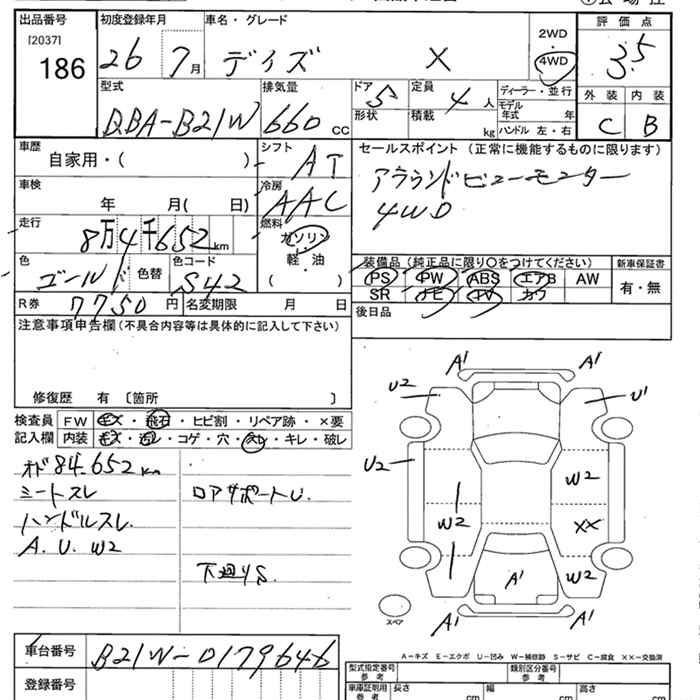 出品番号 初度登録年月 車名・グレード 評価点
[2037]
186
26年 7月 デイズ X
2WD
4WD
3.5
外装 内装
C B
型式 排気量 ドア 定員 ディーラー・並行
DBA-B21W 660cc 5 4人
モデル年式 年
形状 積載 kg ハンドル 左・右
車歴 自家用・( )
シフト AT
セールスポイント(正常に機能するものに限ります)
アラウンドビューモニター
4WD
車検 年 月( 日)
冷房 AAC
走行 8万4千652km
燃料 ガソリン・軽・油 ( )
色 ゴールド 色替 色コード S42
装備品(純正品に限り○をつけてください) 新車保証書
PS PW ABS エアB AW 有・無
SR ナビ TV カワ
R券 7750円 名変期限 月 日
後日品
注意事項申告欄(不具合内容等は具体的に記入して下さい)
修復歴 有 〔箇所 〕
検査員 FW キズ・飛石・ヒビ割・リペア跡・×要
記入欄 内装 キズ・汚レ・コゲ・穴・スレ・キレ・破レ
オド84,652km
シートスレ
ロアサポートU.
ハンドルスレ
A. U. W2
下廻りS
A' A'
U2 U'
U2 W2
W2 XX
W2
A'
A' A'
スペア
A-キズ E-エクボ U-凹み W-補修跡 S-サビ C-腐食 ××-交換済
車台番号 B21W-0179646
登録番号
型式指定番号 参考 類別区分番号 参考
車庫証明用 参考 長さ cm 幅 cm 高さ cm